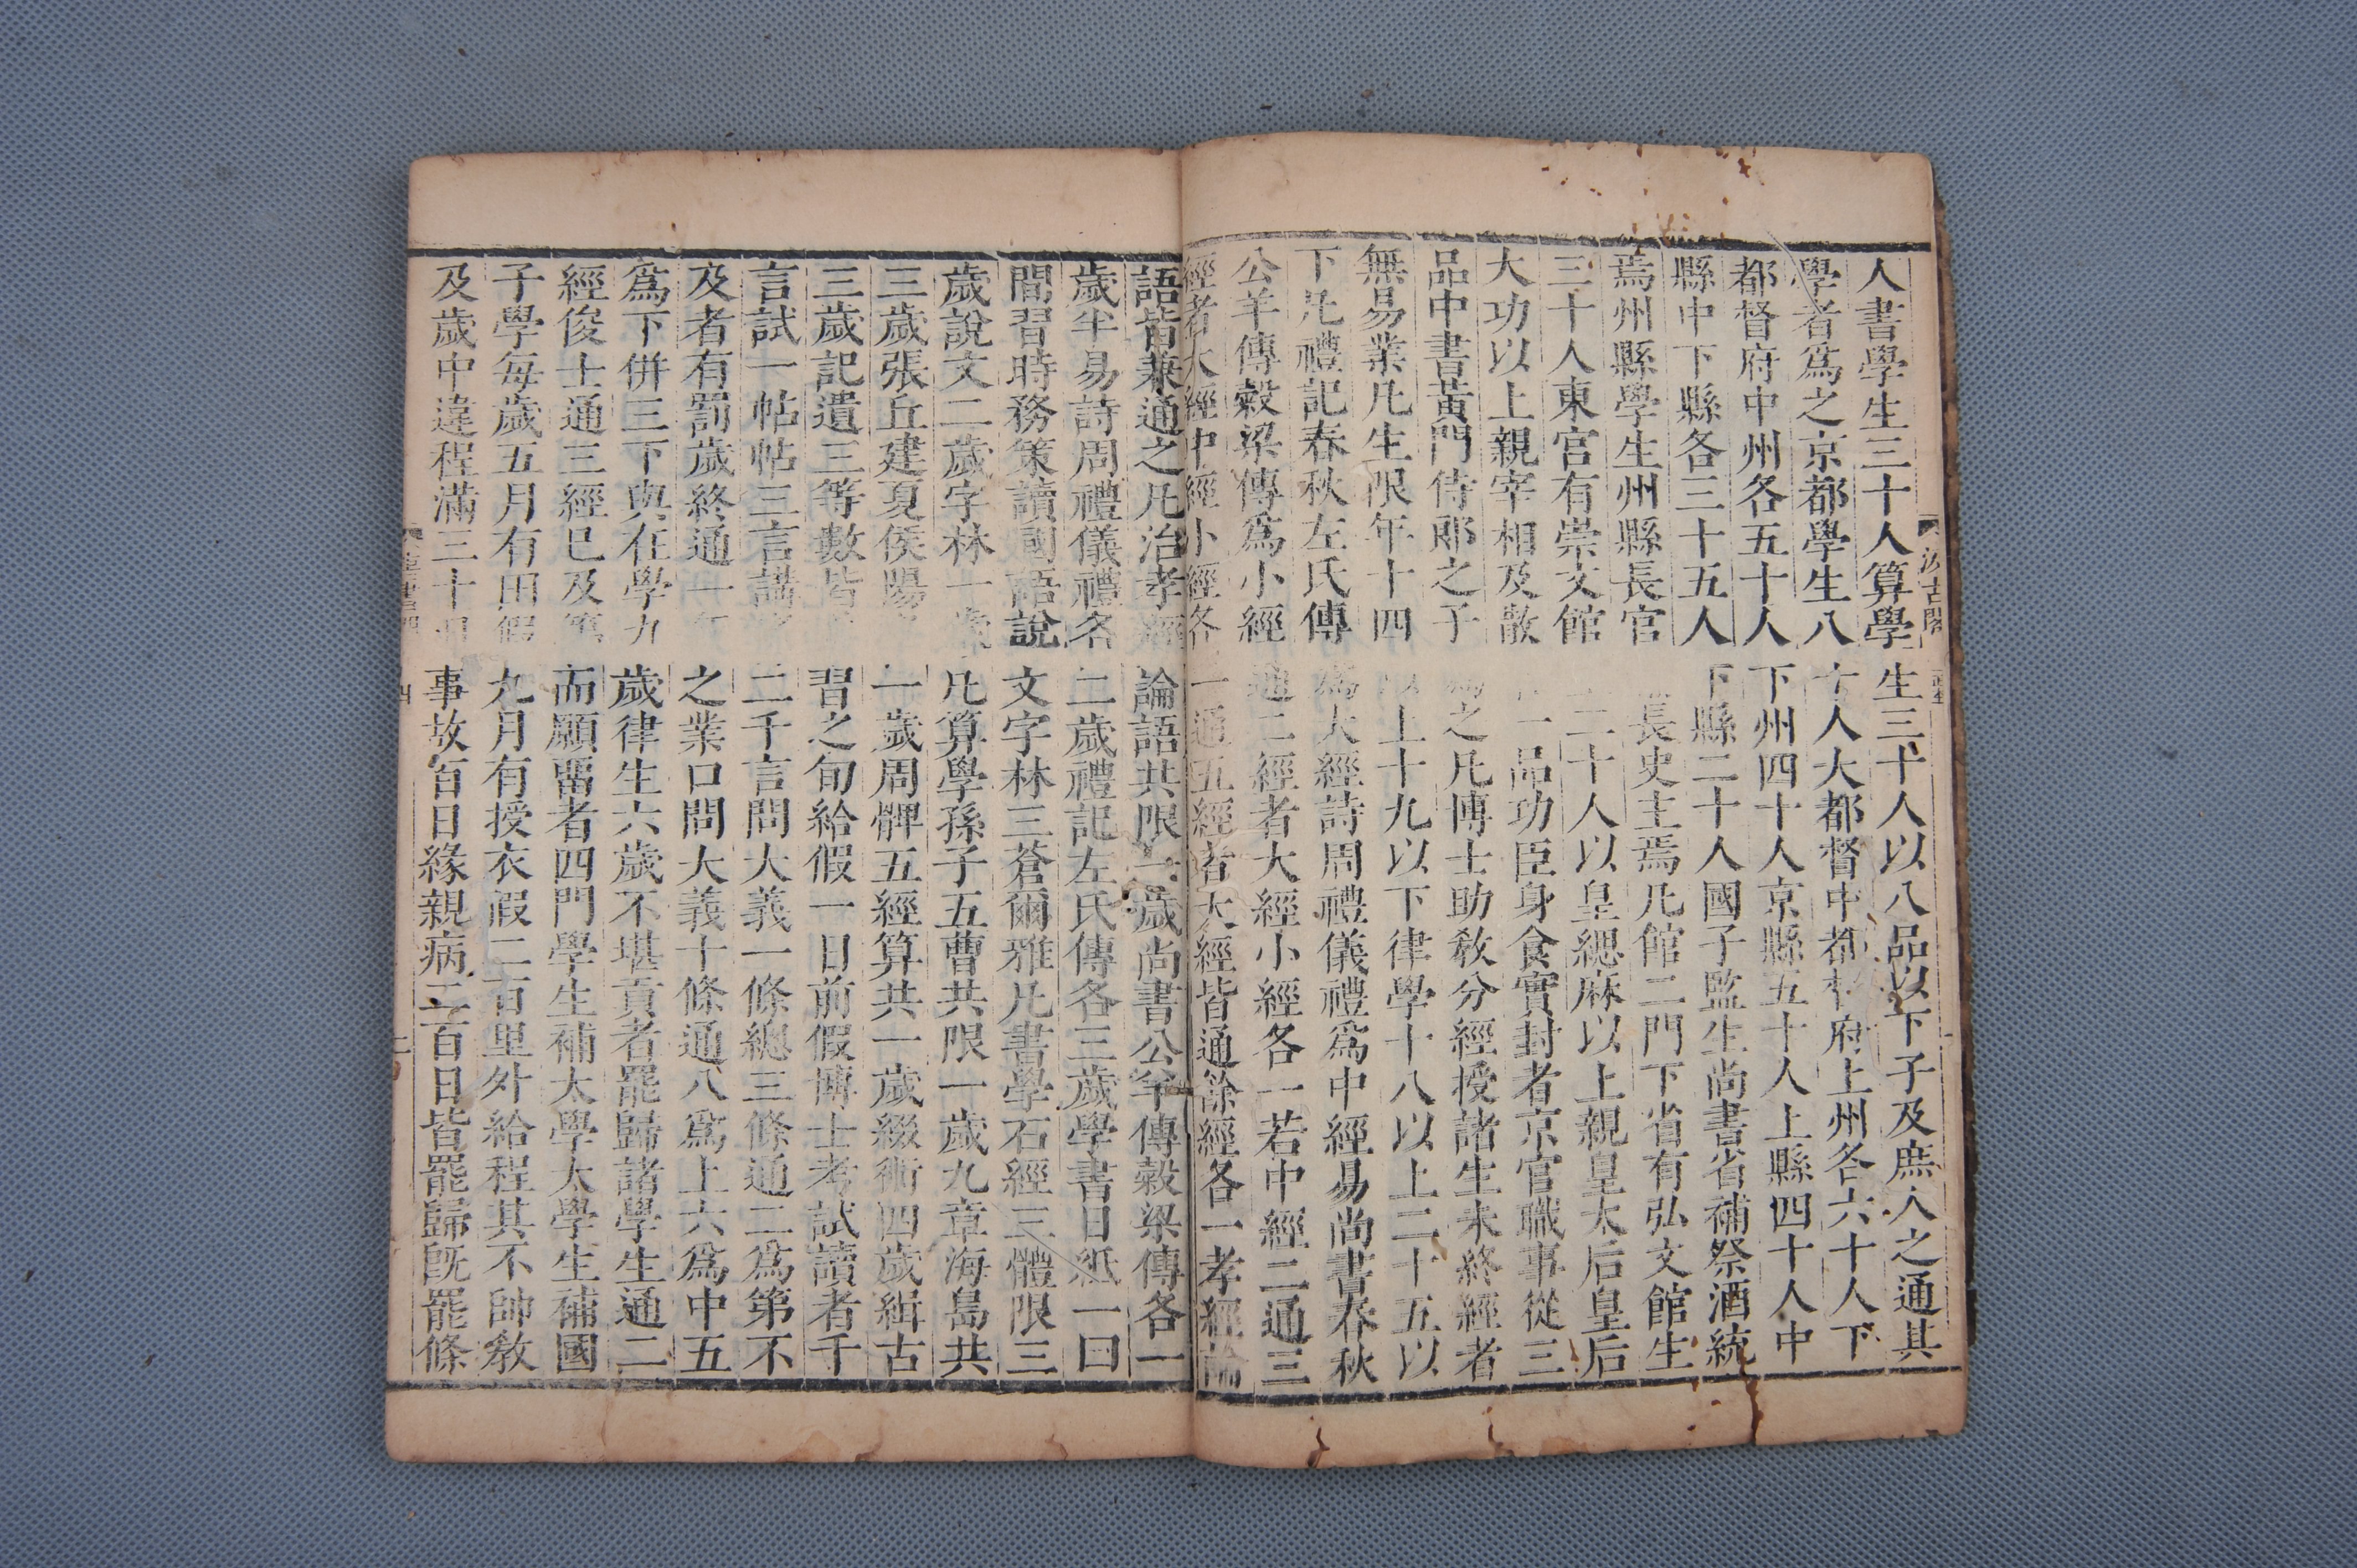 人書學生三十人算學生三十人以八品以下子及庶人之通其
學者爲之京都學生八十人大都督中都督府上州各六十人下
都督府中州各五十人下州四十人京縣五十人上縣四十人中
縣中下縣各三十五人下縣二十人國子監生尚書省補祭酒統
焉州縣學生州縣長官長史主焉凡館二門下省有弘文館生
三十人東宮有崇文館二十人以皇緦麻以上親皇太后皇后
大功以上親宰相及散一品功臣身食實封者京官職事從三
品中書黃門侍郎之子爲之凡博士助教分經授諸生未終經者
無易業凡生限年十四以上十九以下律學十八以上二十五以
下凡禮記春秋左氏傳爲大經詩周禮儀禮爲中經易尚書春秋
公羊傳穀梁傳爲小經通二經者大經小經各一若中經二通三
經者大經中經小經各一通五經者大經皆通餘經各一孝經論
語皆兼通之凡治孝經論語共限一歲尚書公羊傳穀梁傳各一
歲半易詩周禮儀禮各二歲禮記左氏傳各三歲學書日紙一曰
間習時務策讀國語說文字林三蒼爾雅凡書學石經三體限三
歲說文二歲字林一歲凡算學孫子五曹共限一歲九章海島共
三歲張丘建夏侯陽一歲周髀五經算共一歲綴術四歲緝古
三歲記遺三等數皆習之旬給假一日前假博士考試讀者千
言試一帖帖三言講二千言問大義一條總三條通二爲第不
及者有罰歲終通一年之業口問大義十條通八爲上六爲中五
爲下併三下與在學九歲律生六歲不堪貢者罷歸諸學生通二
經俊士通三經已及第而願畱者四門學生補太學太學生補國
子學每歲五月有田假九月有授衣假二百里外給程其不帥敎
及歲中違程滿三十日事故百日緣親病二百日皆罷歸旣罷條
汲古閣
四